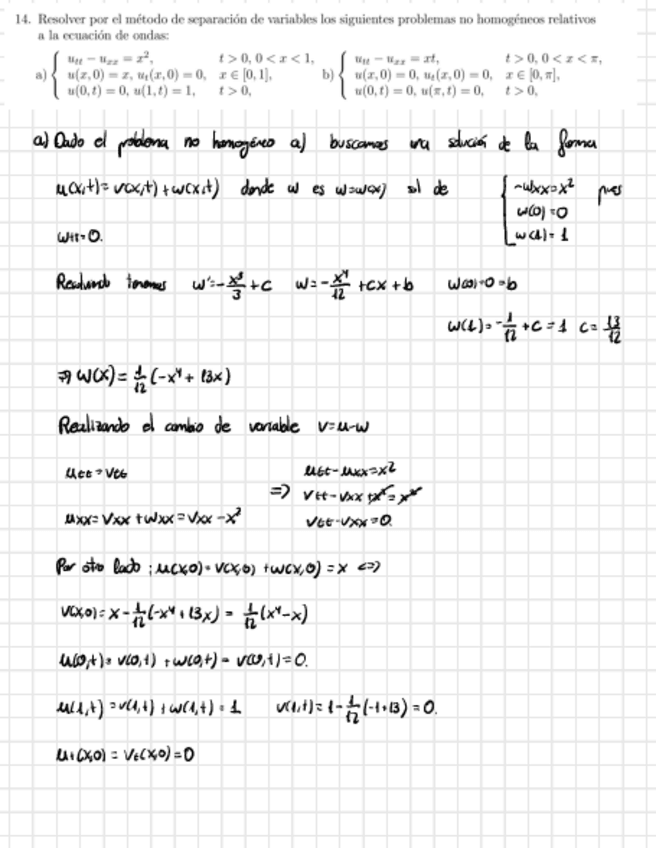 14. Resolver por el método de separación de variables los siguientes problemas no homogéneos relativos
a la ecuación de ondas:
a) { u_tt − u_xx = x², t > 0, 0 < x < 1,
u(x, 0) = x, u_t(x, 0) = 0, x ∈ [0, 1],
u(0, t) = 0, u(1, t) = 1, t > 0,
b) { u_tt − u_xx = xt, t > 0, 0 < x < π,
u(x, 0) = 0, u_t(x, 0) = 0, x ∈ [0, π],
u(0, t) = 0, u(π, t) = 0, t > 0,
a) Dado el problema no homogéneo a) buscamos una solución de la forma
u(x,t) = v(x,t) + w(x,t) donde w es w=w(x) sol de { -wxx=x² pues
w(0)=0
w(1)=1
wtt=0.
Resolviendo tenemos w'=-x³/3+c w=-x⁴/12+cx+b w(0)=0=b
w(1)=-1/12+c=1 c=13/12
⇒ w(x)=1/12(-x⁴+13x)
Realizando el cambio de variable v=u-w
utt=vtt
uxx=vxx+wxx=vxx-x²
⇒ utt-uxx=x²
vtt-vxx+x²=x²
vtt-vxx=0.
Por otro lado: u(x,0)=v(x,0)+w(x,0)=x ⇔
v(x,0)=x-1/12(-x⁴+13x)=1/12(x⁴-x)
u(0,t)=v(0,t)+w(0,t)=v(0,t)=0.
u(1,t)=v(1,t)+w(1,t)=1 v(1,t)=1-1/12(-1+13)=0.
ut(x,0)=vt(x,0)=0